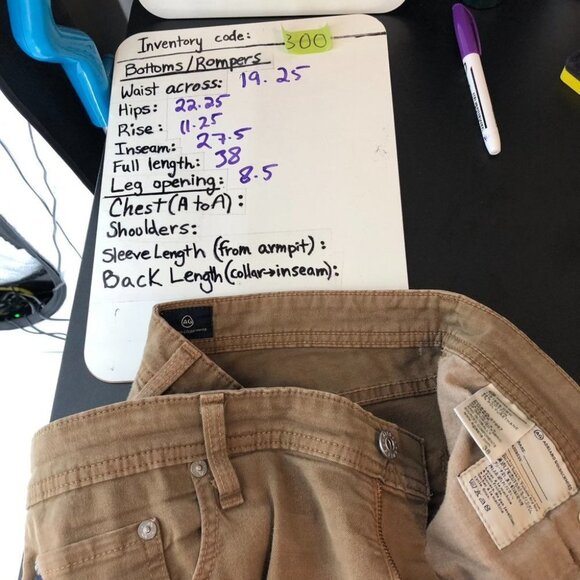 Inventory code: 300
Bottoms/Rompers
Waist across: 19.25
Hips: 22.25
Rise: 11.25
Inseam: 27.5
Full length: 38
Leg opening: 8.5
Chest (A to A):
Shoulders:
Sleeve Length (from armpit):
Back Length (collar→inseam):
AG